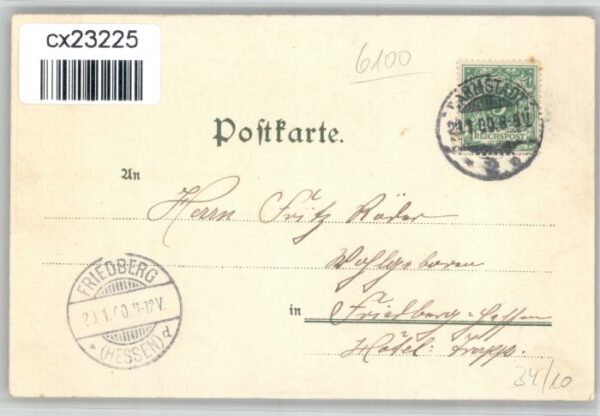 cx23225
6100
DARMSTADT
20.1.00. 8-9V.
REICHSPOST
* 2 *
Postkarte.
An
Herrn Fritz Röder
Wohlgeboren
in Friedberg-Hessen
Hôtel: Trapp.
FRIEDBERG
20.1.00.11-12V.
* (HESSEN) d
34/10